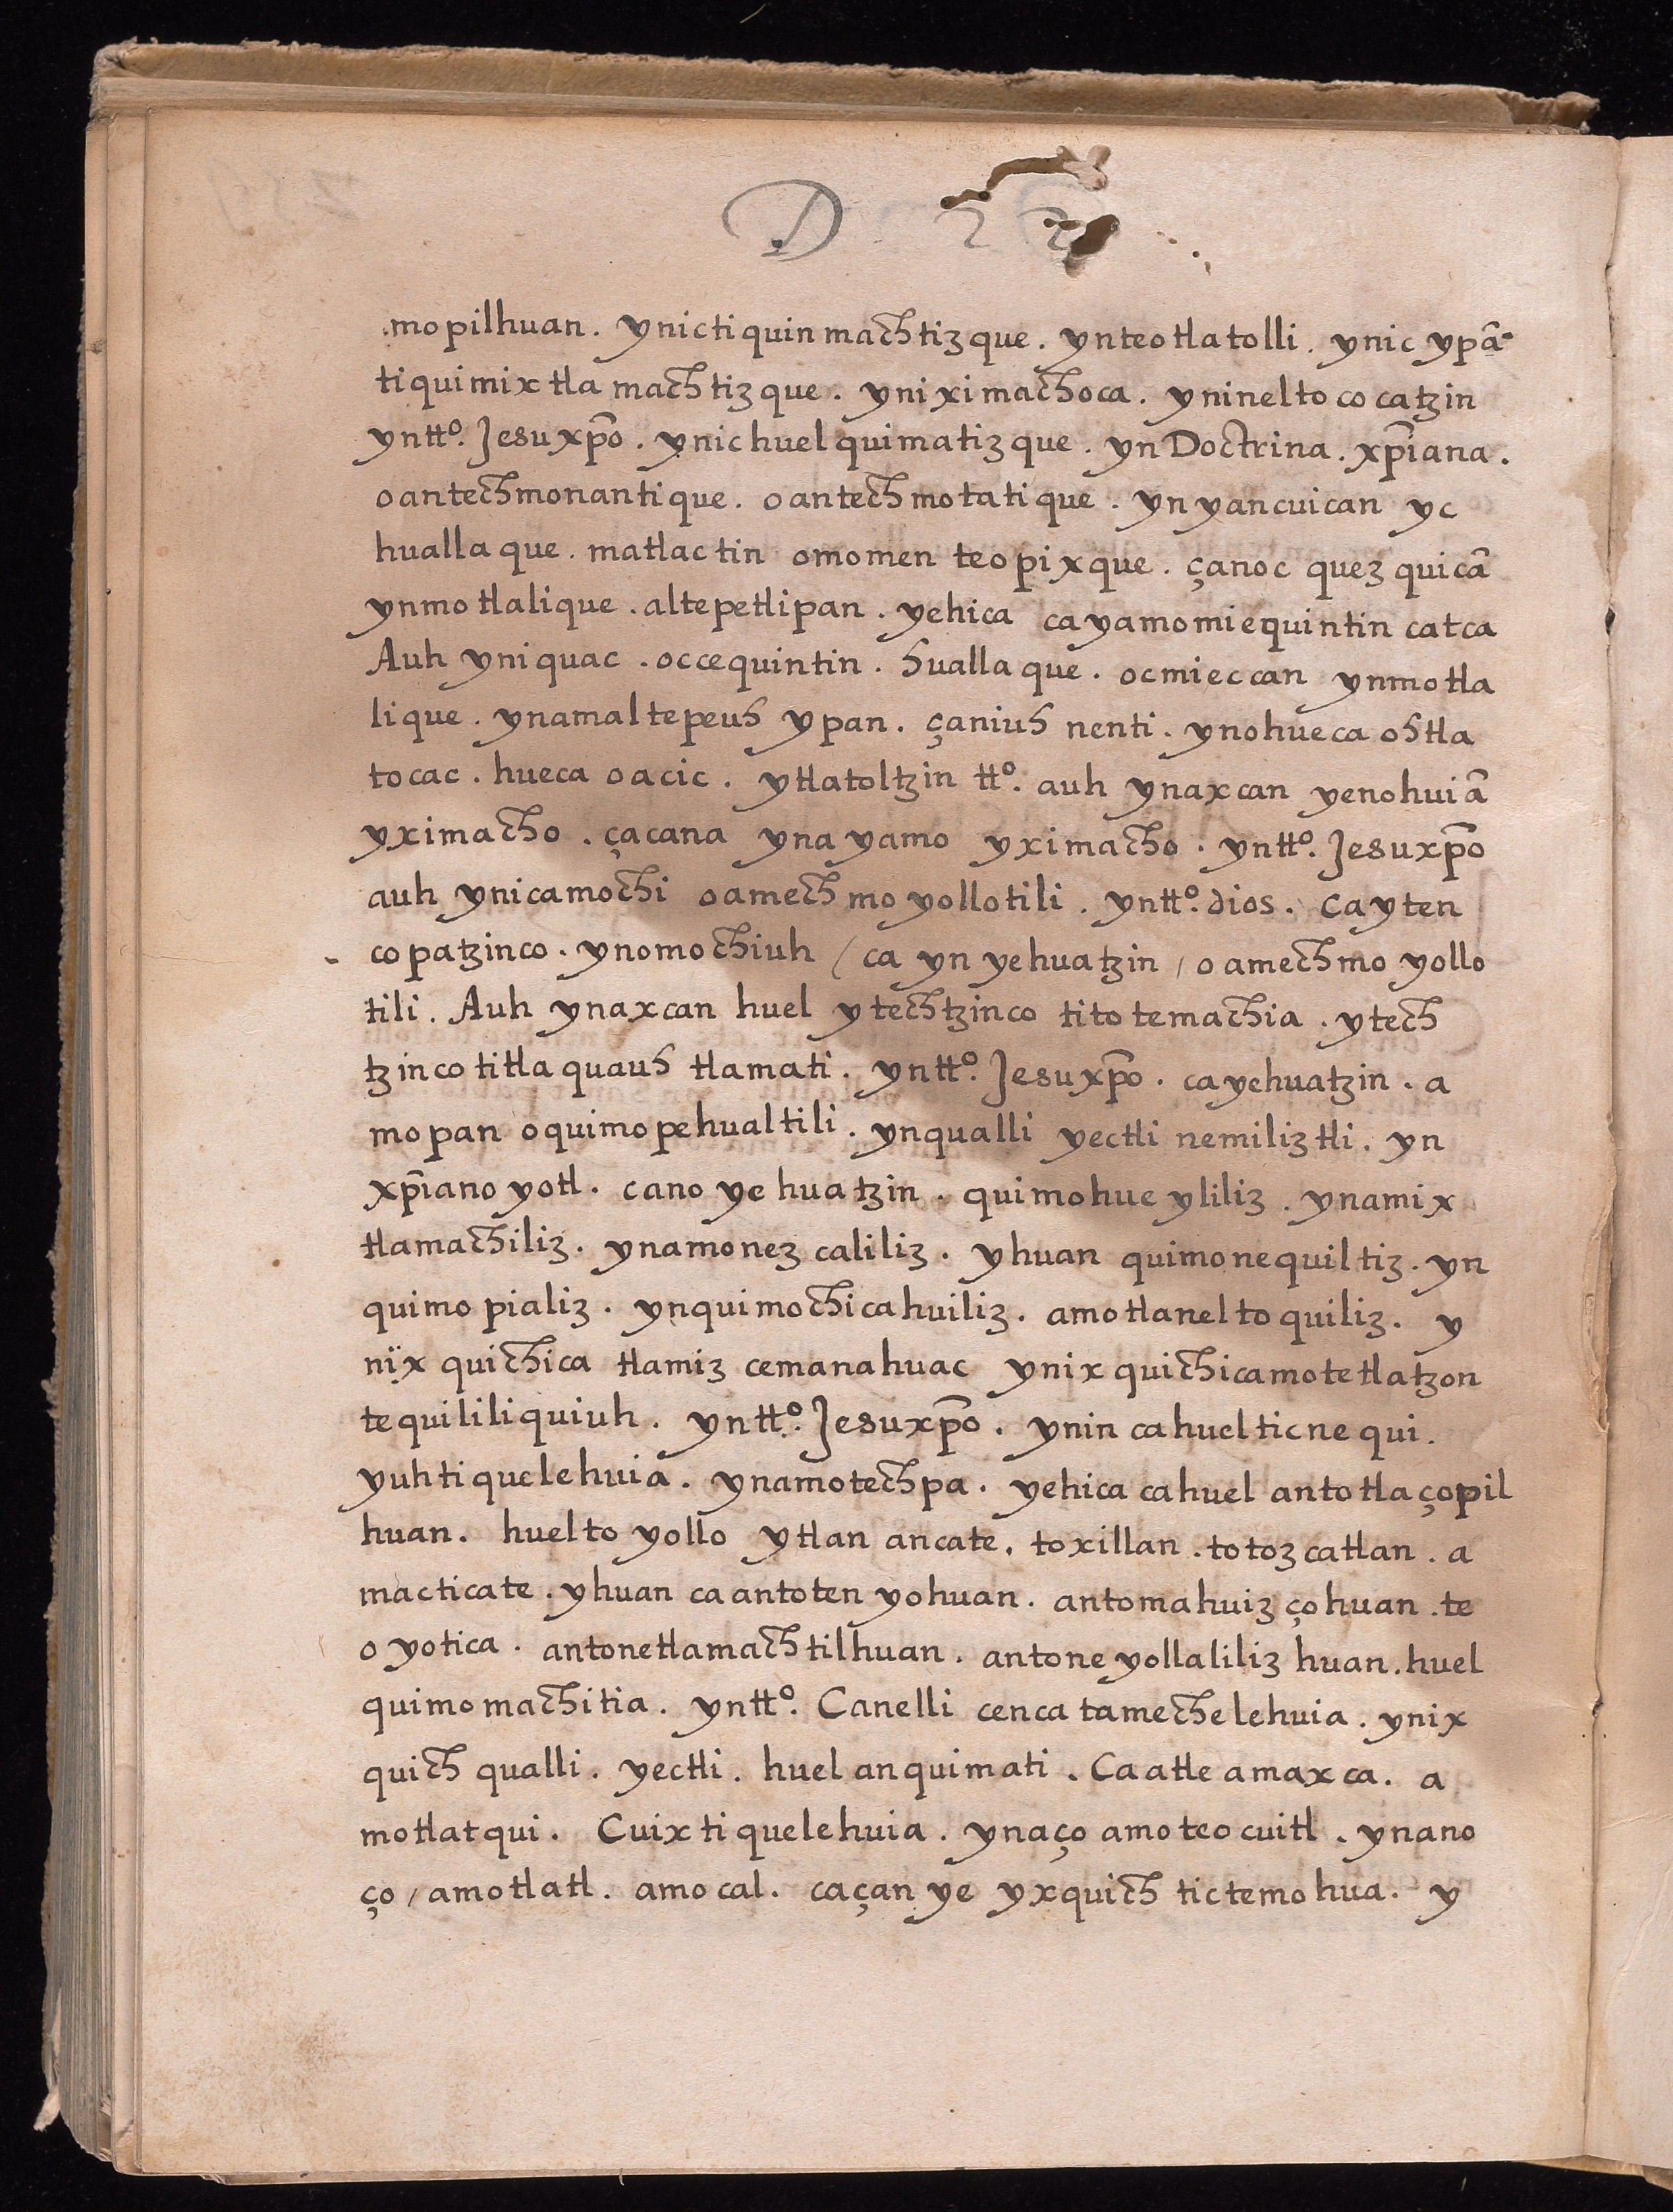 D
mopilhuan. ynictiquin machtizque. ynteotlatolli. ynic ypā
tiquimixtla machtizque. yniximachoca. yninelto cocatzin
yntt.º Jesuxp̄o. ynichuelquimatizque. yn Doctrina. xp̄iana.
oantechmonantique. oantechmotatique. yn yancuican yc
huallaque. matlactin omomen teopixque. çanoc quezquicā
ynmotlalique. altepetlipan. yehica cayamomiequintin catca
Auh yniquac. occequintin. huallaque. ocmieccan ynmotla
lique. ynamaltepeuh ypan. çaniuh nenti. ynohueca ohtla
tocac. hueca oacic. ytlatoltzin tt.º auh ynaxcan yenohuiā
yximacho. çacana yna yamo yximacho. yntt.º Jesuxp̄o
auh ynicamochi oamechmoyollotili. yntt.º dios. Cayten
copatzinco. ynomochiuh / ca yn yehuatzin / oamechmo yollo
tili. Auh ynaxcan huel ytechtzinco titotemachia. ytech
tzinco titlaquauh tlamati. yntt.º Jesuxp̄o. cayehuatzin. a
mopan oquimopehualtili. ynqualli yectli nemiliztli. yn
xp̄iano yotl. cano yehuatzin. quimohueyliliz. ynamix
tlamachiliz. ynamonezcaliliz. yhuan quimonequiltiz. yn
quimopializ. ynquimochicahuiliz. amotlaneltoquiliz. y
nïx quichica tlamiz cemanahuac ynix quichicamotetlatzon
tequililiquiuh. yntt.º Jesuxp̄o. ynin cahuelticnequi.
yuhtiquelehuia. ynamotechpa. yehica cahuel antotlaçopil
huan. huelto yollo ytlan ancate. toxillan. totozcatlan. a
macticate. yhuan caantoten yohuan. antomahuizçohuan. te
o yotica. antonetlamachtilhuan. antone yollaliliz huan. huel
quimomachitia. yntt.º Canelli cenca tamechelehuia. ynix
quich qualli. yectli. huel anquimati. Caatle amaxca. a
motlatqui. Cuix tiquelehuia. ynaço amoteocuitl. ynano
ço / amotlatl. amocal. caçan ye yxquich tictemohua. y